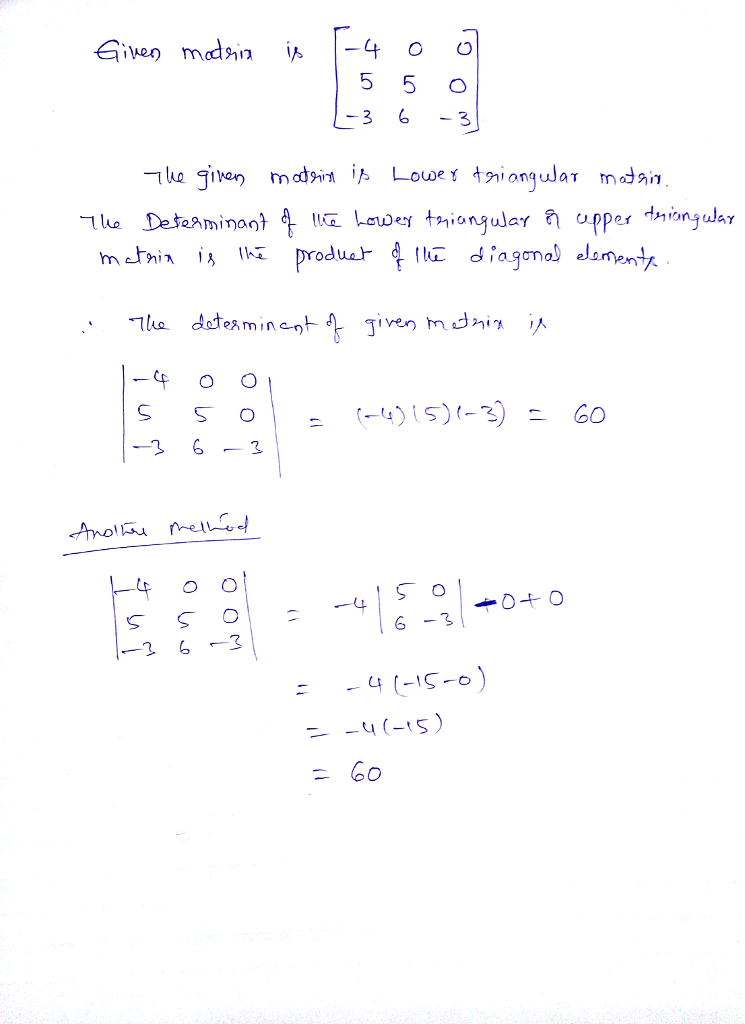 Given matrix is [-4 0 0
5 5 0
-3 6 -3]
The given matrix is Lower triangular matrix.
The Determinant of the Lower triangular or upper triangular
matrix is the product of the diagonal elements.
∴ The determinant of given matrix is
|-4 0 0|
|5 5 0| = (-4)(5)(-3) = 60
|-3 6 -3|
Another method
|-4 0 0|
|5 5 0| = -4 |5 0| - 0 + 0
|-3 6 -3| |6 -3|
= -4(-15-0)
= -4(-15)
= 60